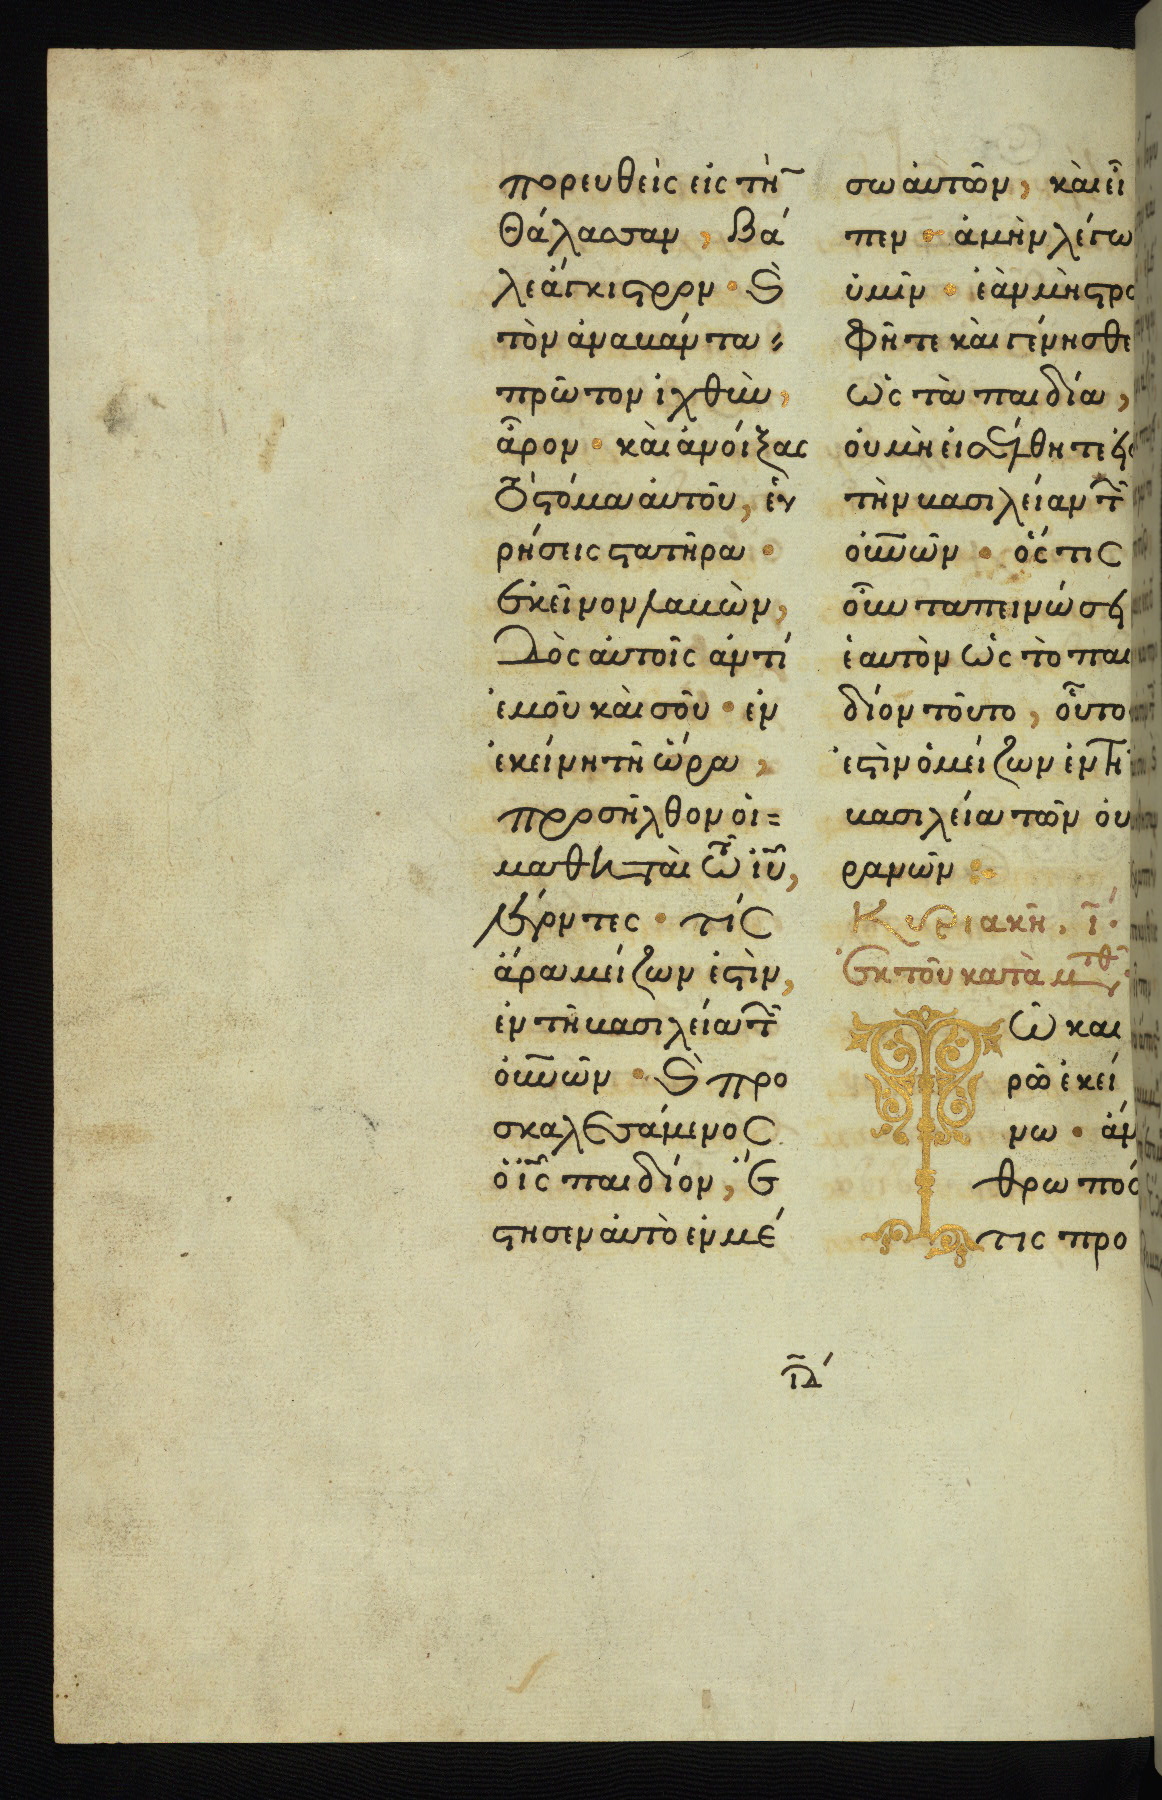 πορευθεὶς εἰς τὴ̃
θάλασσαν, βά
λε ἄγκιστρον · Ϗ̀
τὸν ἀναβάντα
πρῶτον ἰχθὺν,
ἆρον · καὶ ἀνοίξας
τὸ στόμα αὐτοῦ, εὑ
ρήσεις στατῆρα ·
ἐκεῖνον λαβὼν,
δὸς αὐτοῖς ἀντὶ
ἐμοῦ καὶ σοῦ · ἐν
ἐκείνη τῆ ὥρα,
προσῆλθον οἱ
μαθηταὶ τῶ ἰῦ,
λέγοντες · τίς
ἄρα μείζων ἐστὶν,
ἐν τῆ βασιλεία τῶ̃
οὐνῶν · Ϗ̀ προ
σκαλεσάμενος
ὁ ἰς̃ παιδίον, ἔ
στησεν αὐτὸ ἐν μέ
σω αὐτῶν, καὶ εἶ
πεν · ἀμὴν λέγω
ὑμῖν · ἐὰν μὴ στρα
φῆτε καὶ γένησθε
ὡς τὰ παιδία,
οὐ μὴ εἰσέλθητε εἰς
τὴν βασιλείαν τῶ̃
οὐνῶν · ὅς τις
οὖν ταπεινώσει
ἑαυτὸν ὡς τὸ παι
δίον τοῦτο, οὗτο
ἐστὶν ὁ μείζων ἐν τῆ
βασιλεία τῶν οὐ
ρανῶν :
Κυριακῆ. ῑ́.
Ἐκ τοῦ κατὰ ματθ
Τῶ και
ρῶ ἐκεί
νω · ἄν
θρωπός
τις προ
ῑδ́